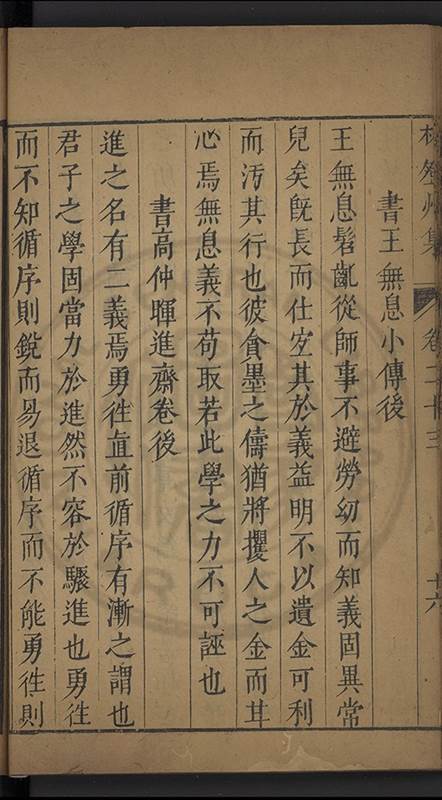 集 卷二十三 十六
書王無息小傳後
王無息髫齔從師事不避勞幼而知義固異常
兒矣旣長而仕宜其於義益明不以遺金可利
而汚其行也彼貪墨之儔猶將攫人之金而甘
心焉無息義不苟取若此學之力不可誣也
書高仲暉進齋卷後
進之名有二義焉勇徃直前循序有漸之謂也
君子之學固當力於進然不容於驟進也勇徃
而不知循序則銳而易退循序而不能勇徃則